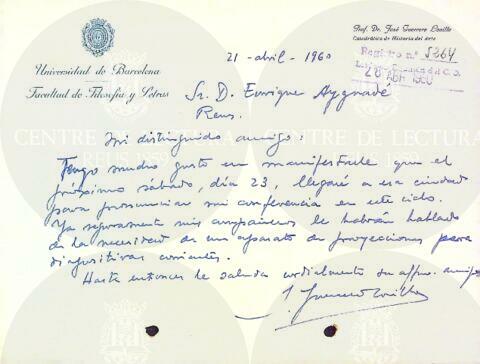 Prof. Dr. José Guerrero Lovillo
Catedrático de Historia del Arte
Universidad de Barcelona
Facultad de Filosofía y Letras
21 - abril - 1960
Registro n.º 5264
28 ABR 1960
Sr. D. Enrique Aygnadé
Reus.
Mi distinguido amigo:
Tengo mucho gusto en manifestarle que el
próximo sábado, día 23, llegaré a esa ciudad
para pronunciar mi conferencia en este ciclo.
Ya seguramente mis compañeros le habrán hablado
de la necesidad de un aparato de proyecciones para
diapositivas corrientes.
Hasta entonces le saluda cordialmente su affmo. amigo
J. Guerrero Lovillo
CENTRE DE LECTURA
REUS 1859